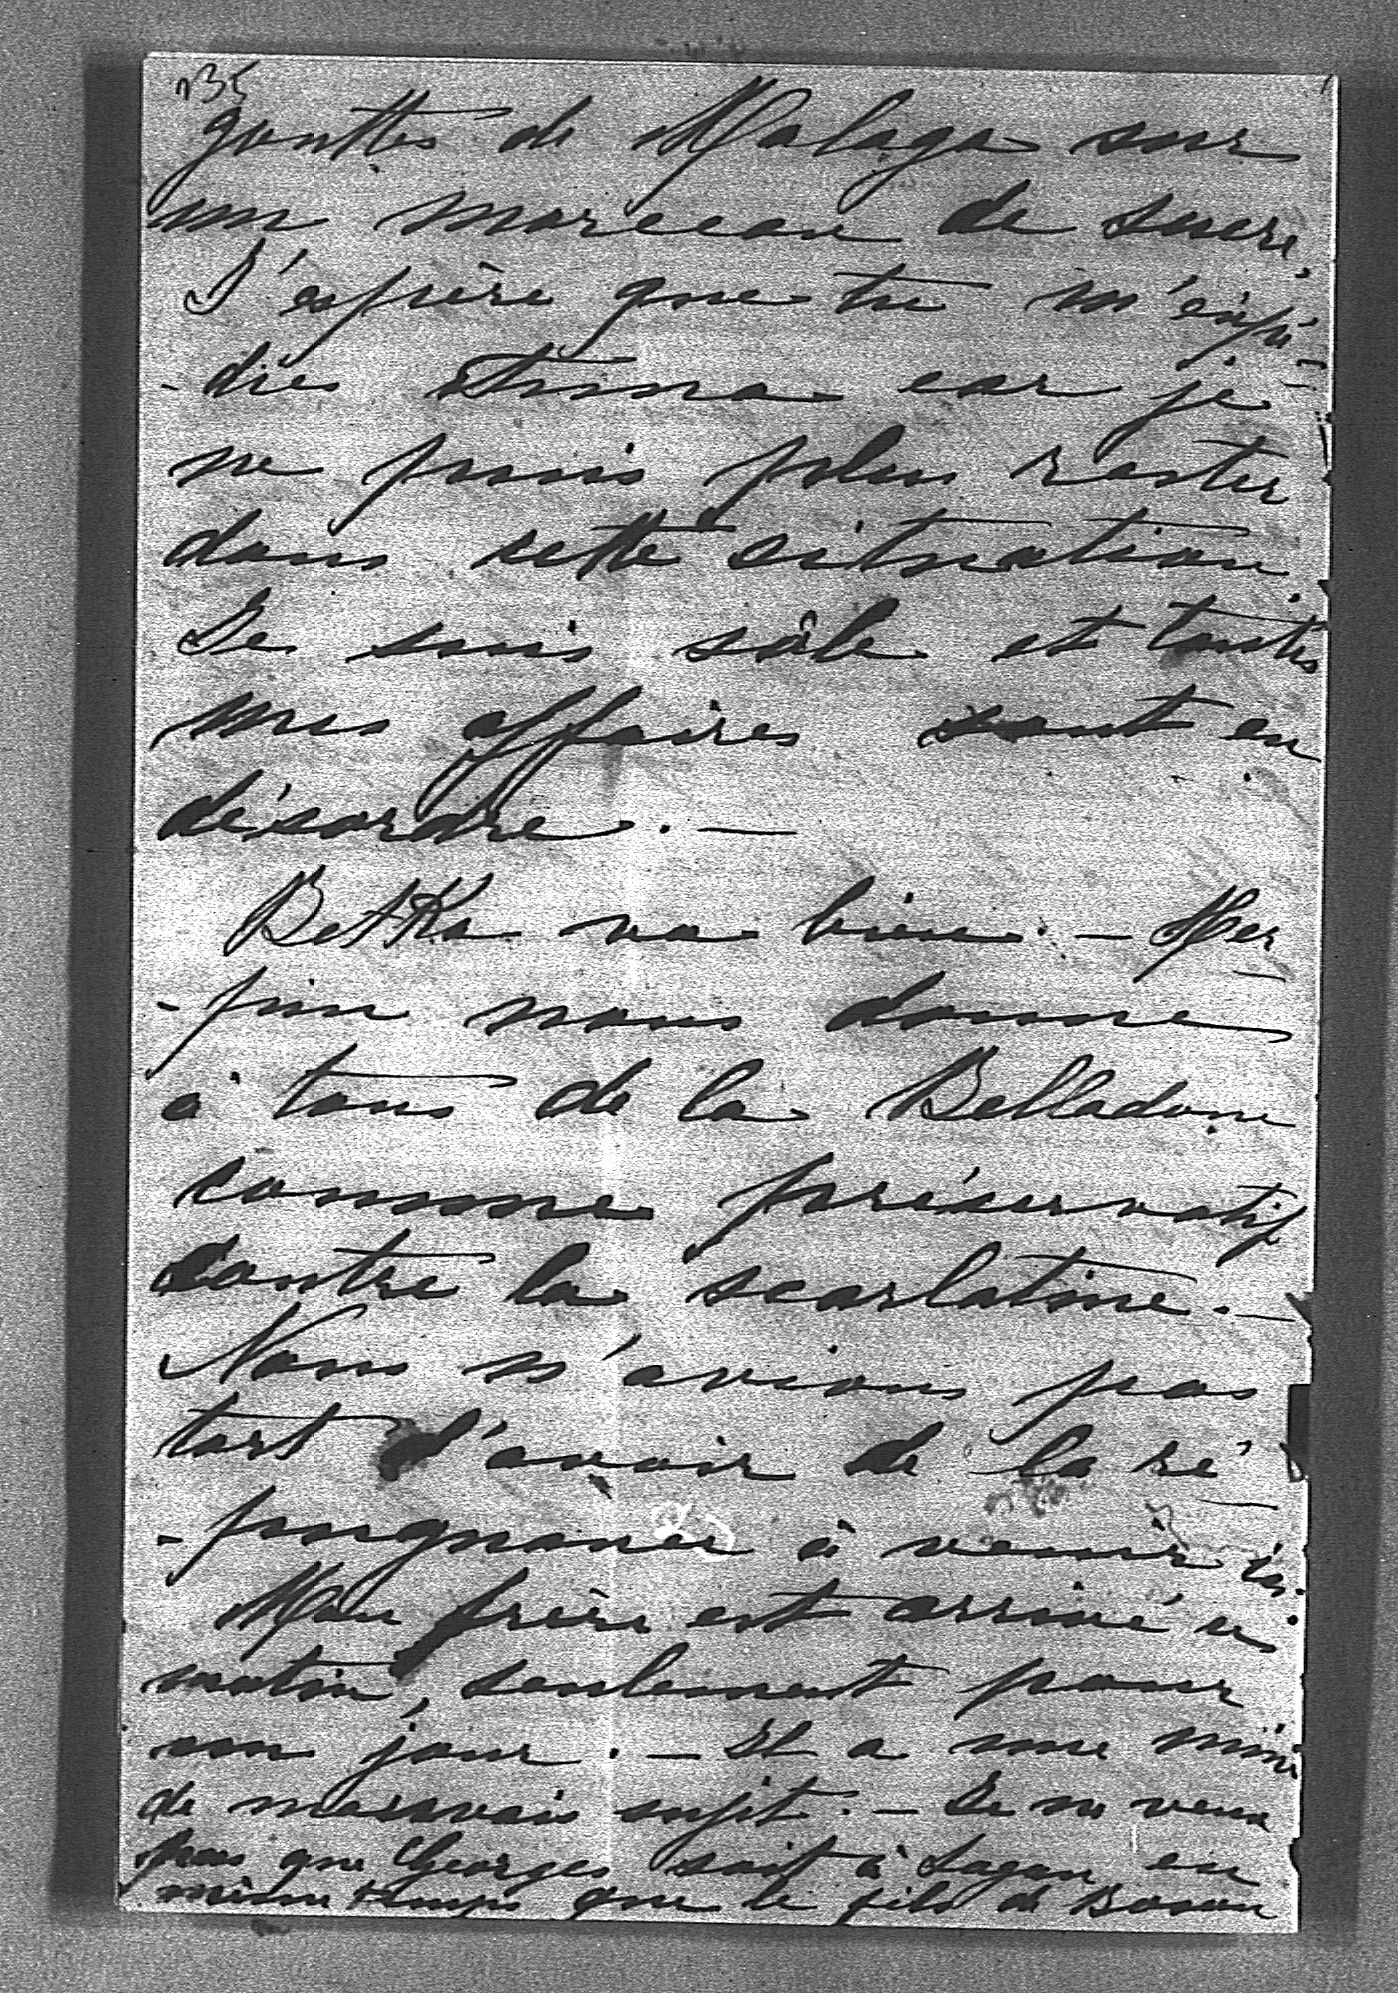 n35
gouttes de Malaga sur
un morceau de sucre.
J'espère que tu m'expé-
-dies Anna car je
ne puis plus rester
dans cette situation.
Je suis sâle et toutes
mes affaires sont en
désordre. —
Betka va bien. — Her-
-pin nous donne
à tous de la Belladone
comme préservatif
contre la scarlatine. —
Nous n'avions pas
tort d'avoir de la ré-
-pugnance à venir ici.
Mon frère est arrivé ce
matin, seulement pour
un jour. — Il a une mine
de mauvais sujet. — Je ne veux
pas que Georges soit à Sagan en
même temps que le fils de Boson